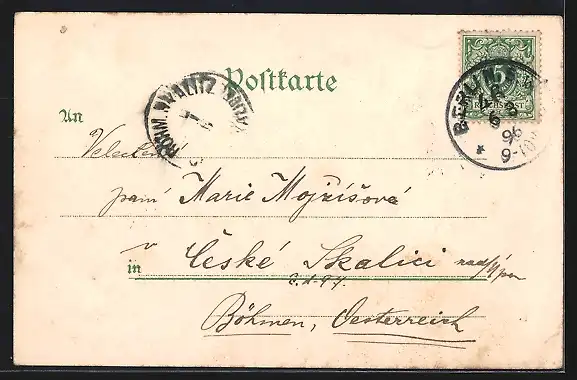 Postkarte
5
REICHSPOST
BERLIN
96
9-10
BÖHM. SKALITZ
An
Velectěná
paní Marie Mojžíšová
v České Skalici
in
č. d. 94.
Böhmen, Oesterreich